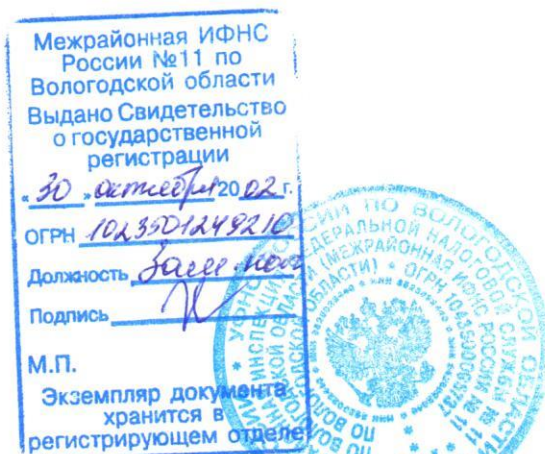 Межрайонная ИФНС
России №11 по
Вологодской области
Выдано Свидетельство
о государственной
регистрации
«30» октября 2002 г.
ОГРН 1023501249210
Должность Зам. нач
Подпись
М.П.
Экземпляр документа
хранится в
регистрирующем отделе
РОССИИ ПО ВОЛОГОДСКОЙ ОБЛАСТИ
ФЕДЕРАЛЬНОЙ НАЛОГОВОЙ СЛУЖБЫ № 11
(МЕЖРАЙОННАЯ ИФНС РОССИИ № 11
ОБЛАСТИ) * ОГРН